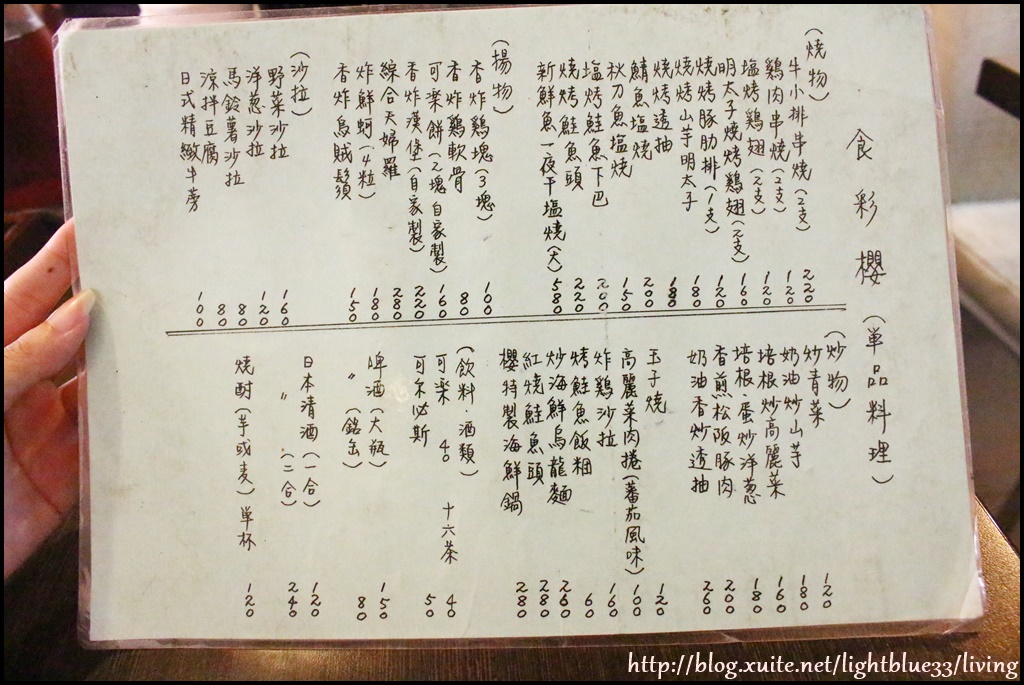 食彩櫻(単品料理)
(燒物)
牛小排串燒(2支) 220
鷄肉串燒(2支) 120
塩烤鷄翅(2支) 120
明太子燒烤鷄翅(2支) 160
燒烤豚肋排(1支) 120
燒烤山芋明太子 180
燒烤透抽 180
鯖魚塩燒 200
秋刀魚塩燒 150
塩烤鮭魚下巴 200
燒烤鮭魚頭 220
新鮮魚一夜干塩燒(大) 580
(揚物)
香炸鷄塊(3塊) 100
香炸鷄軟骨 80
可楽餅(2塊自家製) 160
香炸漢堡(自家製) 220
綜合天婦羅 280
炸鮮蚵(4粒) 180
香炸烏賊鬚 150
(沙拉)
野菜沙拉 160
洋葱沙拉 120
馬鈴薯沙拉 80
涼拌豆腐 80
日式精緻牛蒡 100
(炒物)
炒青菜 120
奶油炒山芋 180
培根炒高麗菜 160
培根蛋炒洋葱 180
香煎松阪豚肉 200
奶油香炒透抽 260
玉子燒 120
高麗菜肉捲(蕃茄風味) 100
炸鷄沙拉 160
烤鮭魚飯糰 60
炒海鮮烏龍麵 260
紅燒鮭魚頭 280
櫻特製海鮮鍋 280
(飲料.酒類)
可楽 40 十六茶 40
可尔必斯 50
啤酒(大瓶) 150
〃(銘缶) 80
日本清酒(一合) 120
〃(二合) 240
燒酎(芋或麦)単杯 120
http://blog.xuite.net/lightblue33/living